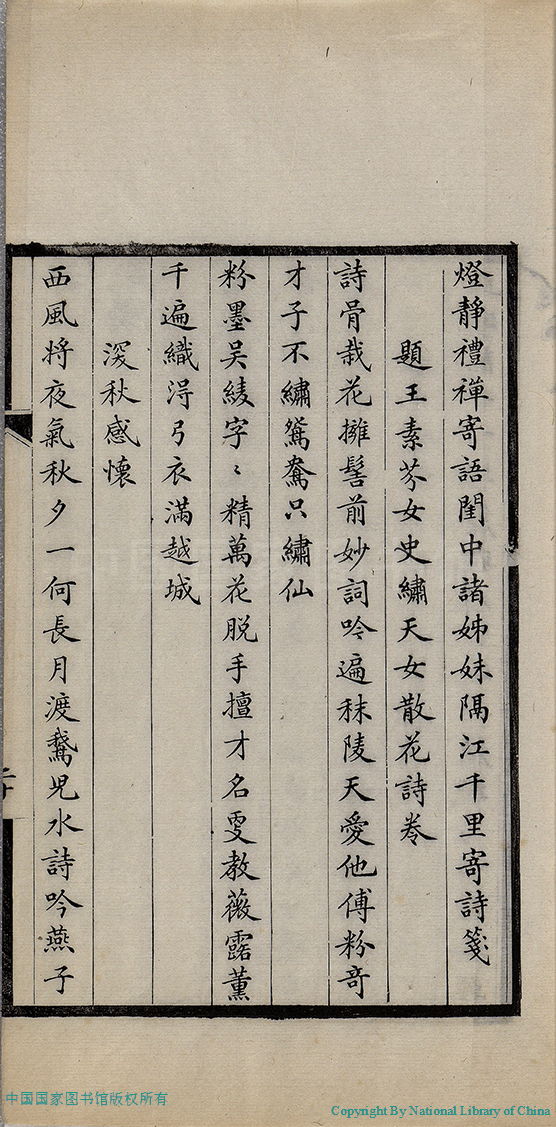 燈靜禮禪寄語閨中諸姊妹隔江千里寄詩箋
題王素芬女史繡天女散花詩卷
詩骨栽花擁髻前妙詞吟遍秣陵天愛他傅粉奇
才子不繡鴛鴦只繡仙
粉墨吴綾字〻精萬花脫手擅才名雯教薇露薰
千遍織淂弓衣滿越城
深秋感懷
西風将夜氣秋夕一何長月渡鵞児水詩吟燕子
二十
中国国家图书馆版权所有
Copyright By National Library of China